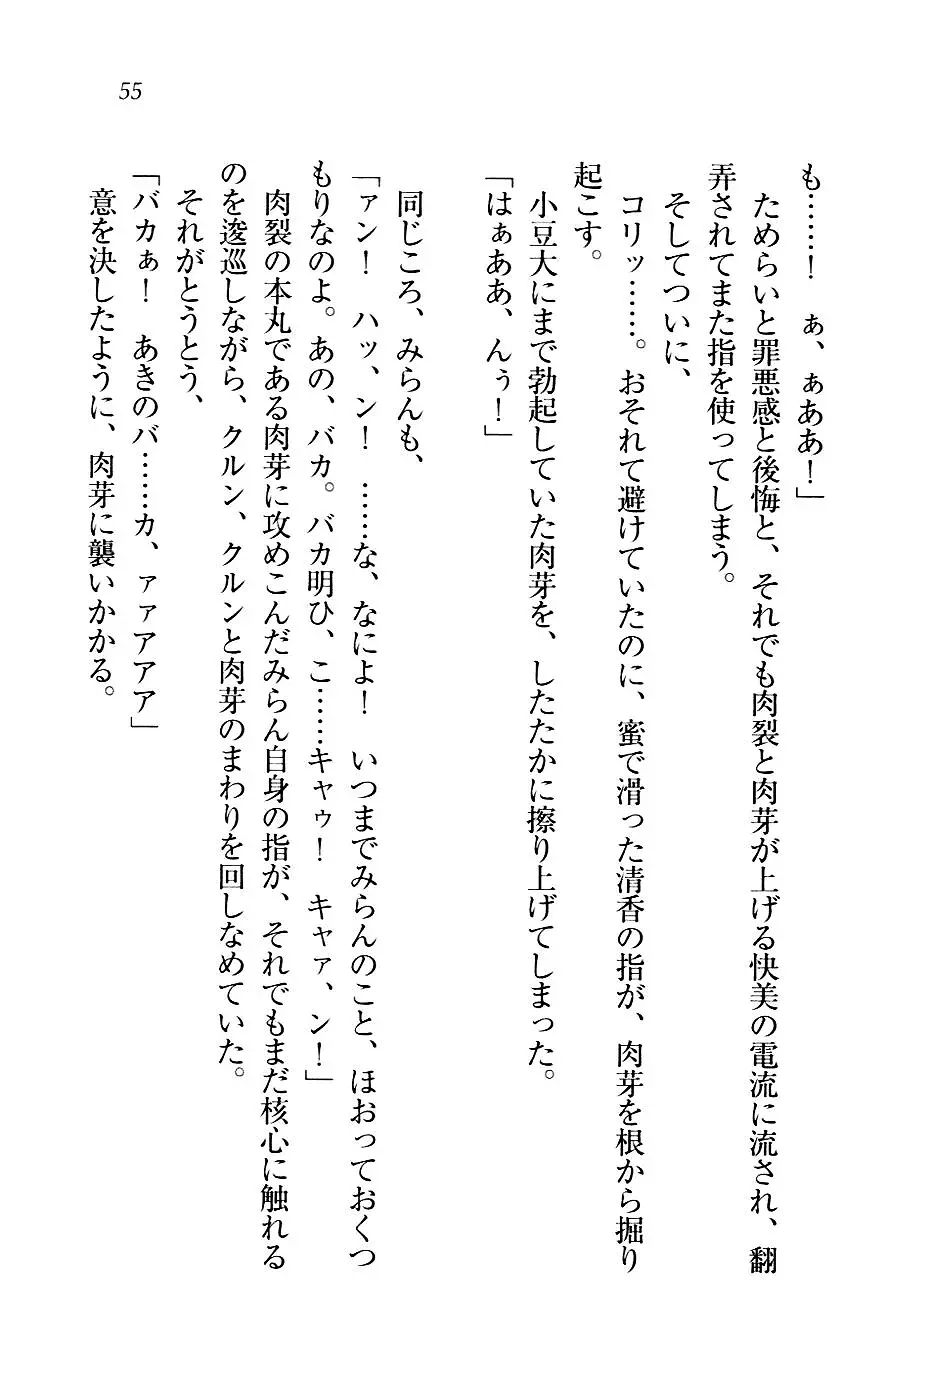 55
も……！　ぁ、ぁああ！」
　ためらいと罪悪感と後悔と、それでも肉裂と肉芽が上げる快美の電流に流され、翻
弄されてまた指を使ってしまう。
　そしてついに、
　コリッ……。おそれて避けていたのに、蜜で滑った清香の指が、肉芽を根から掘り
起こす。
　小豆大にまで勃起していた肉芽を、したたかに擦り上げてしまった。
「はぁああ、んぅ！」
　同じころ、みらんも、
「ァン！　ハッ、ン！　……な、なによ！　いつまでみらんのこと、ほおっておくつ
もりなのよ。あの、バカ。バカ明ひ、こ……キャゥ！　キャァ、ン！」
　肉裂の本丸である肉芽に攻めこんだみらん自身の指が、それでもまだ核心に触れる
のを逡巡しながら、クルン、クルンと肉芽のまわりを回しなめていた。
　それがとうとう、
「バカぁ！　あきのバ……カ、ァァアアア」
　意を決したように、肉芽に襲いかかる。